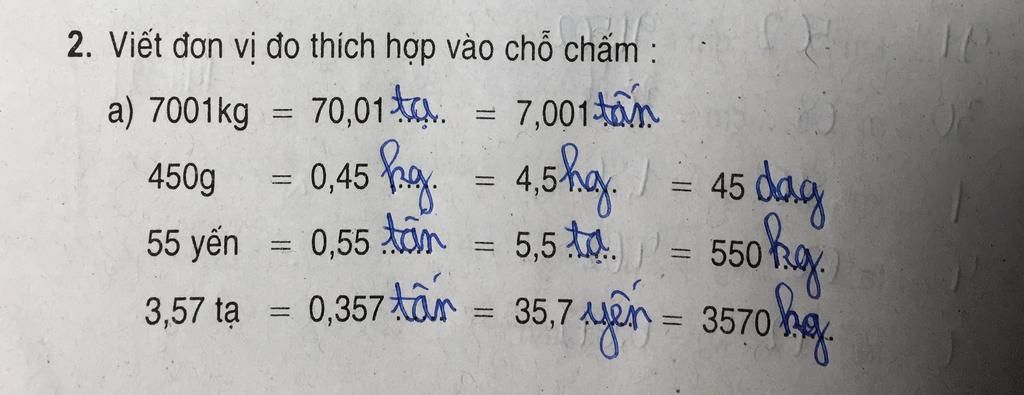 2. Viết đơn vị đo thích hợp vào chỗ chấm :
a) 7001kg = 70,01 tạ. = 7,001 tấn
450g = 0,45 kg. = 4,5 hg. = 45 dag
55 yến = 0,55 tấn = 5,5 tạ. = 550 kg.
3,57 tạ = 0,357 tấn = 35,7 yến = 3570 kg.